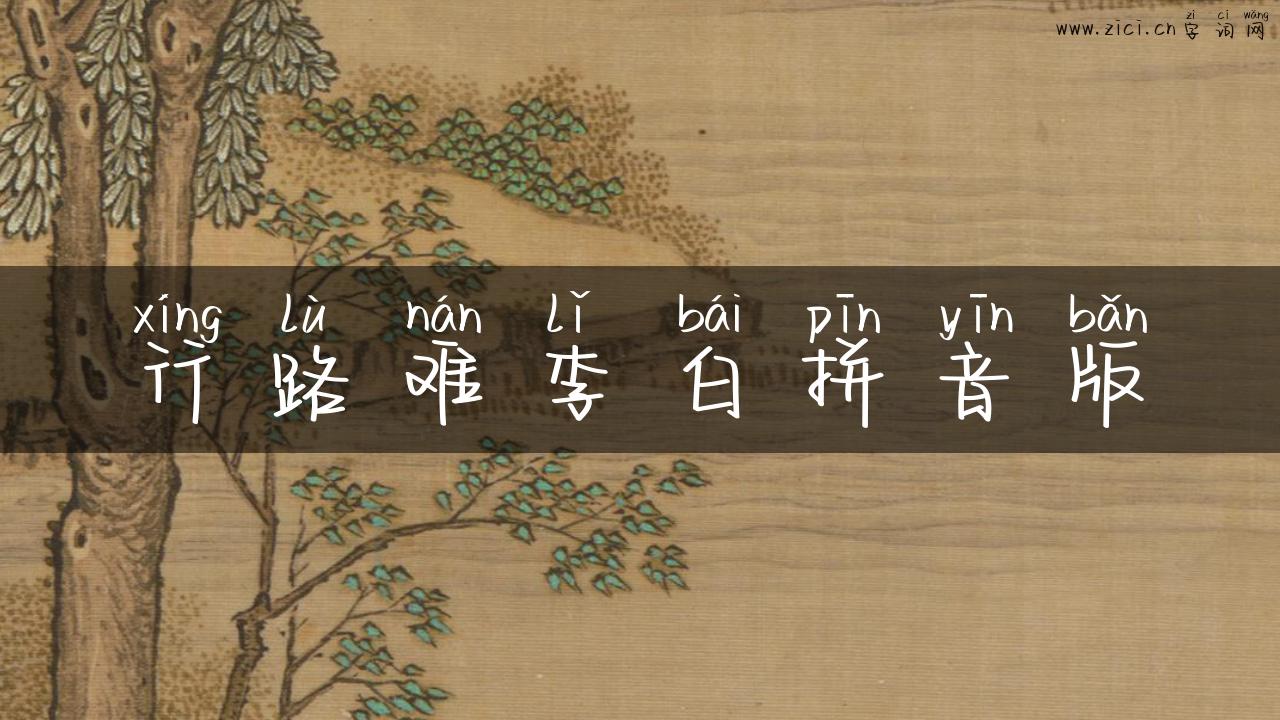 zì cí wǎng
www.zici.cn 字词网
xíng lù nán lǐ bái pīn yīn bǎn
行路难李白拼音版